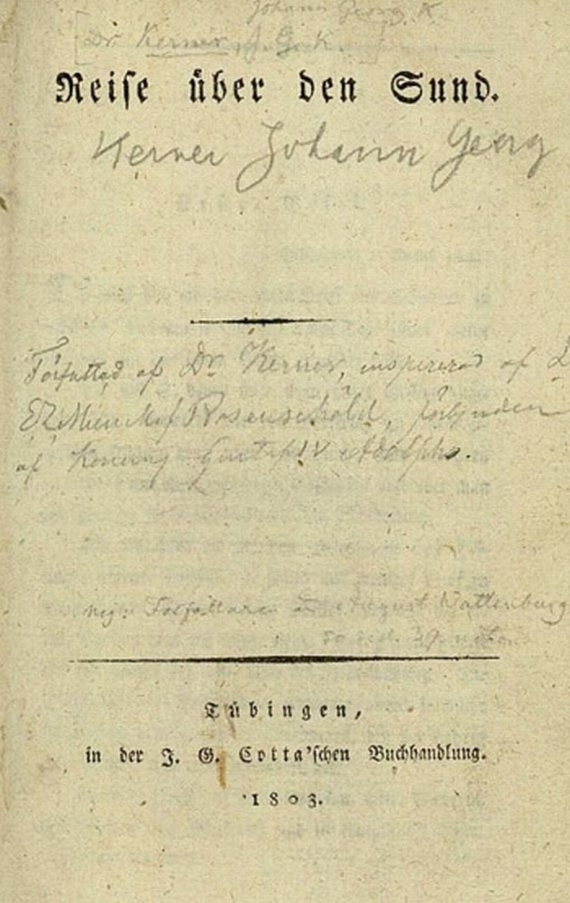 Johann Georg K.
[Dr. Kerner J. G. K.]
Reise über den Sund.
Kerner Johann Georg
Författad af Dr. Kerner, inspirerad af
Rosenschold,
af Konung Gustaf IV Adolphs.
Författare August Wattenburg
Tübingen,
in der J. G. Cotta'schen Buchhandlung.
1803.